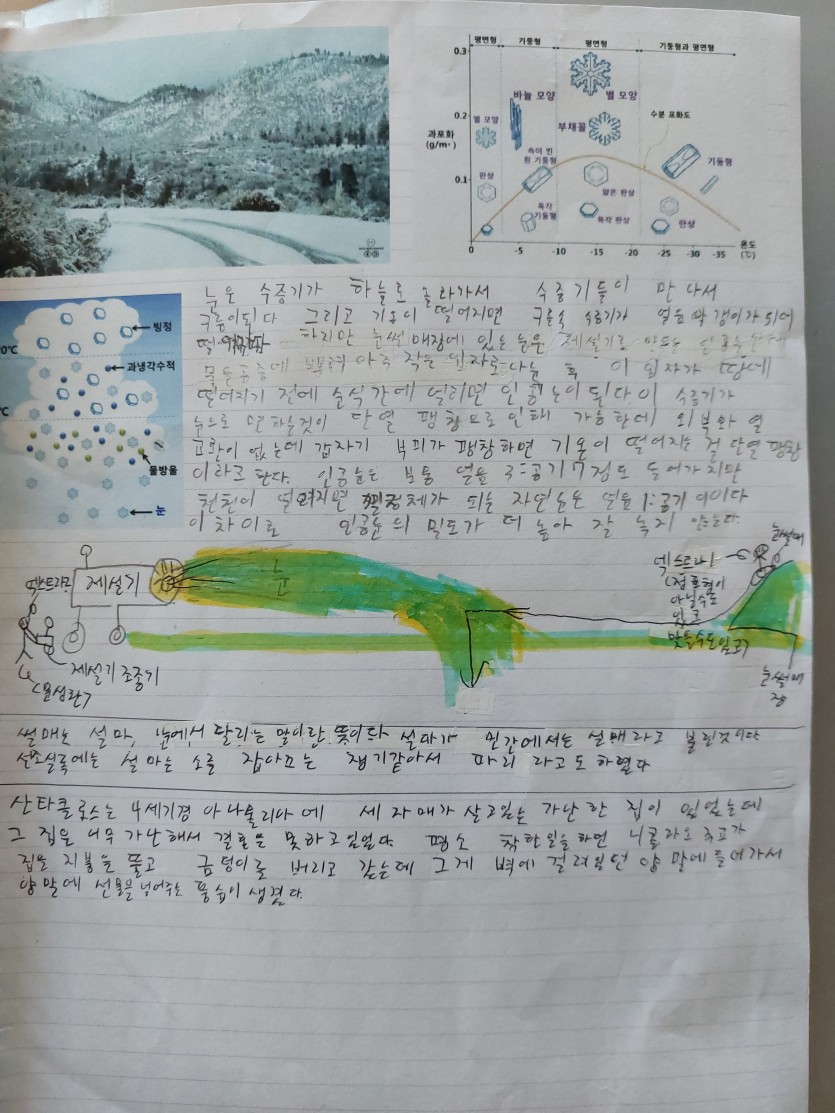 평면형 기둥형 평면형 기둥형과 평면형
0.3
바늘 모양 별 모양
0.2
과포화
(g/m³)
별 모양 부채꼴 수분 포화도
속이 빈
원 기둥형 기둥형
판상
0.1
얇은 판상
육각
기둥형 육각 판상 판상
0 -5 -10 -15 -20 -25 -30 -35 온도
(℃)
빙정
0℃
과냉각수적
℃
물방울
눈
눈은 수증기가 하늘로 올라가서 수증기들이 만나서
구름이되다 그리고 기온이 떨어지면 구름속 수증기가 얼음 알갱이가 되어
떨어진다 하지만 눈썰매장에 있는 눈은 제설기로 만드는 인공눈인데
물을공중에 뿌려 아주 작은 입자로 나눈 후 이 입자가 땅에
떨어지기 전에 순식간에 얼리면 인공눈이 된다 이 수증기가
눈으로 변하는것이 단열 팽창으로 인해 가능한데 외부와 열
교환이 없는데 갑자기 부피가 팽창하면 기온이 떨어지는 걸 단열 팽창
이라고 한다. 인공눈은 보통 얼음 3:공기 7정도 들어가지만
천천히 떨어지면 결정체가 되는 자연눈은 얼음 1:공기 9이다
이 차이로 인공눈의 밀도가 더 높아 잘 녹지 않는다.
엑스트라2 제설기 눈
엑스트라1
(점프형이
아닐수도
있고
맞을수도있고)
눈썰매
제설기 조종기
눈썰매
장
썰매는 설마, 눈에서 달리는 말이란 뜻이다 설마가 민간에서는 설매라고 불린것이다
설마는 소를 잡아끄는 쟁기같아서 파리 라고도 하였다
산타클로스는 4세기경 아나톨리아에 세 자매가 살고있는 가난한 집이 있었는데
그 집은 너무 가난해서 결혼을 못하고 있었다. 평소 착한일을 하면 니콜라오 주교가
집을 지붕을 뚫고 금덩이를 버리고 갔는데 그게 벽에 걸려있던 양말에 들어가서
양말에 선물을 넣어주는 풍습이 생겼다.